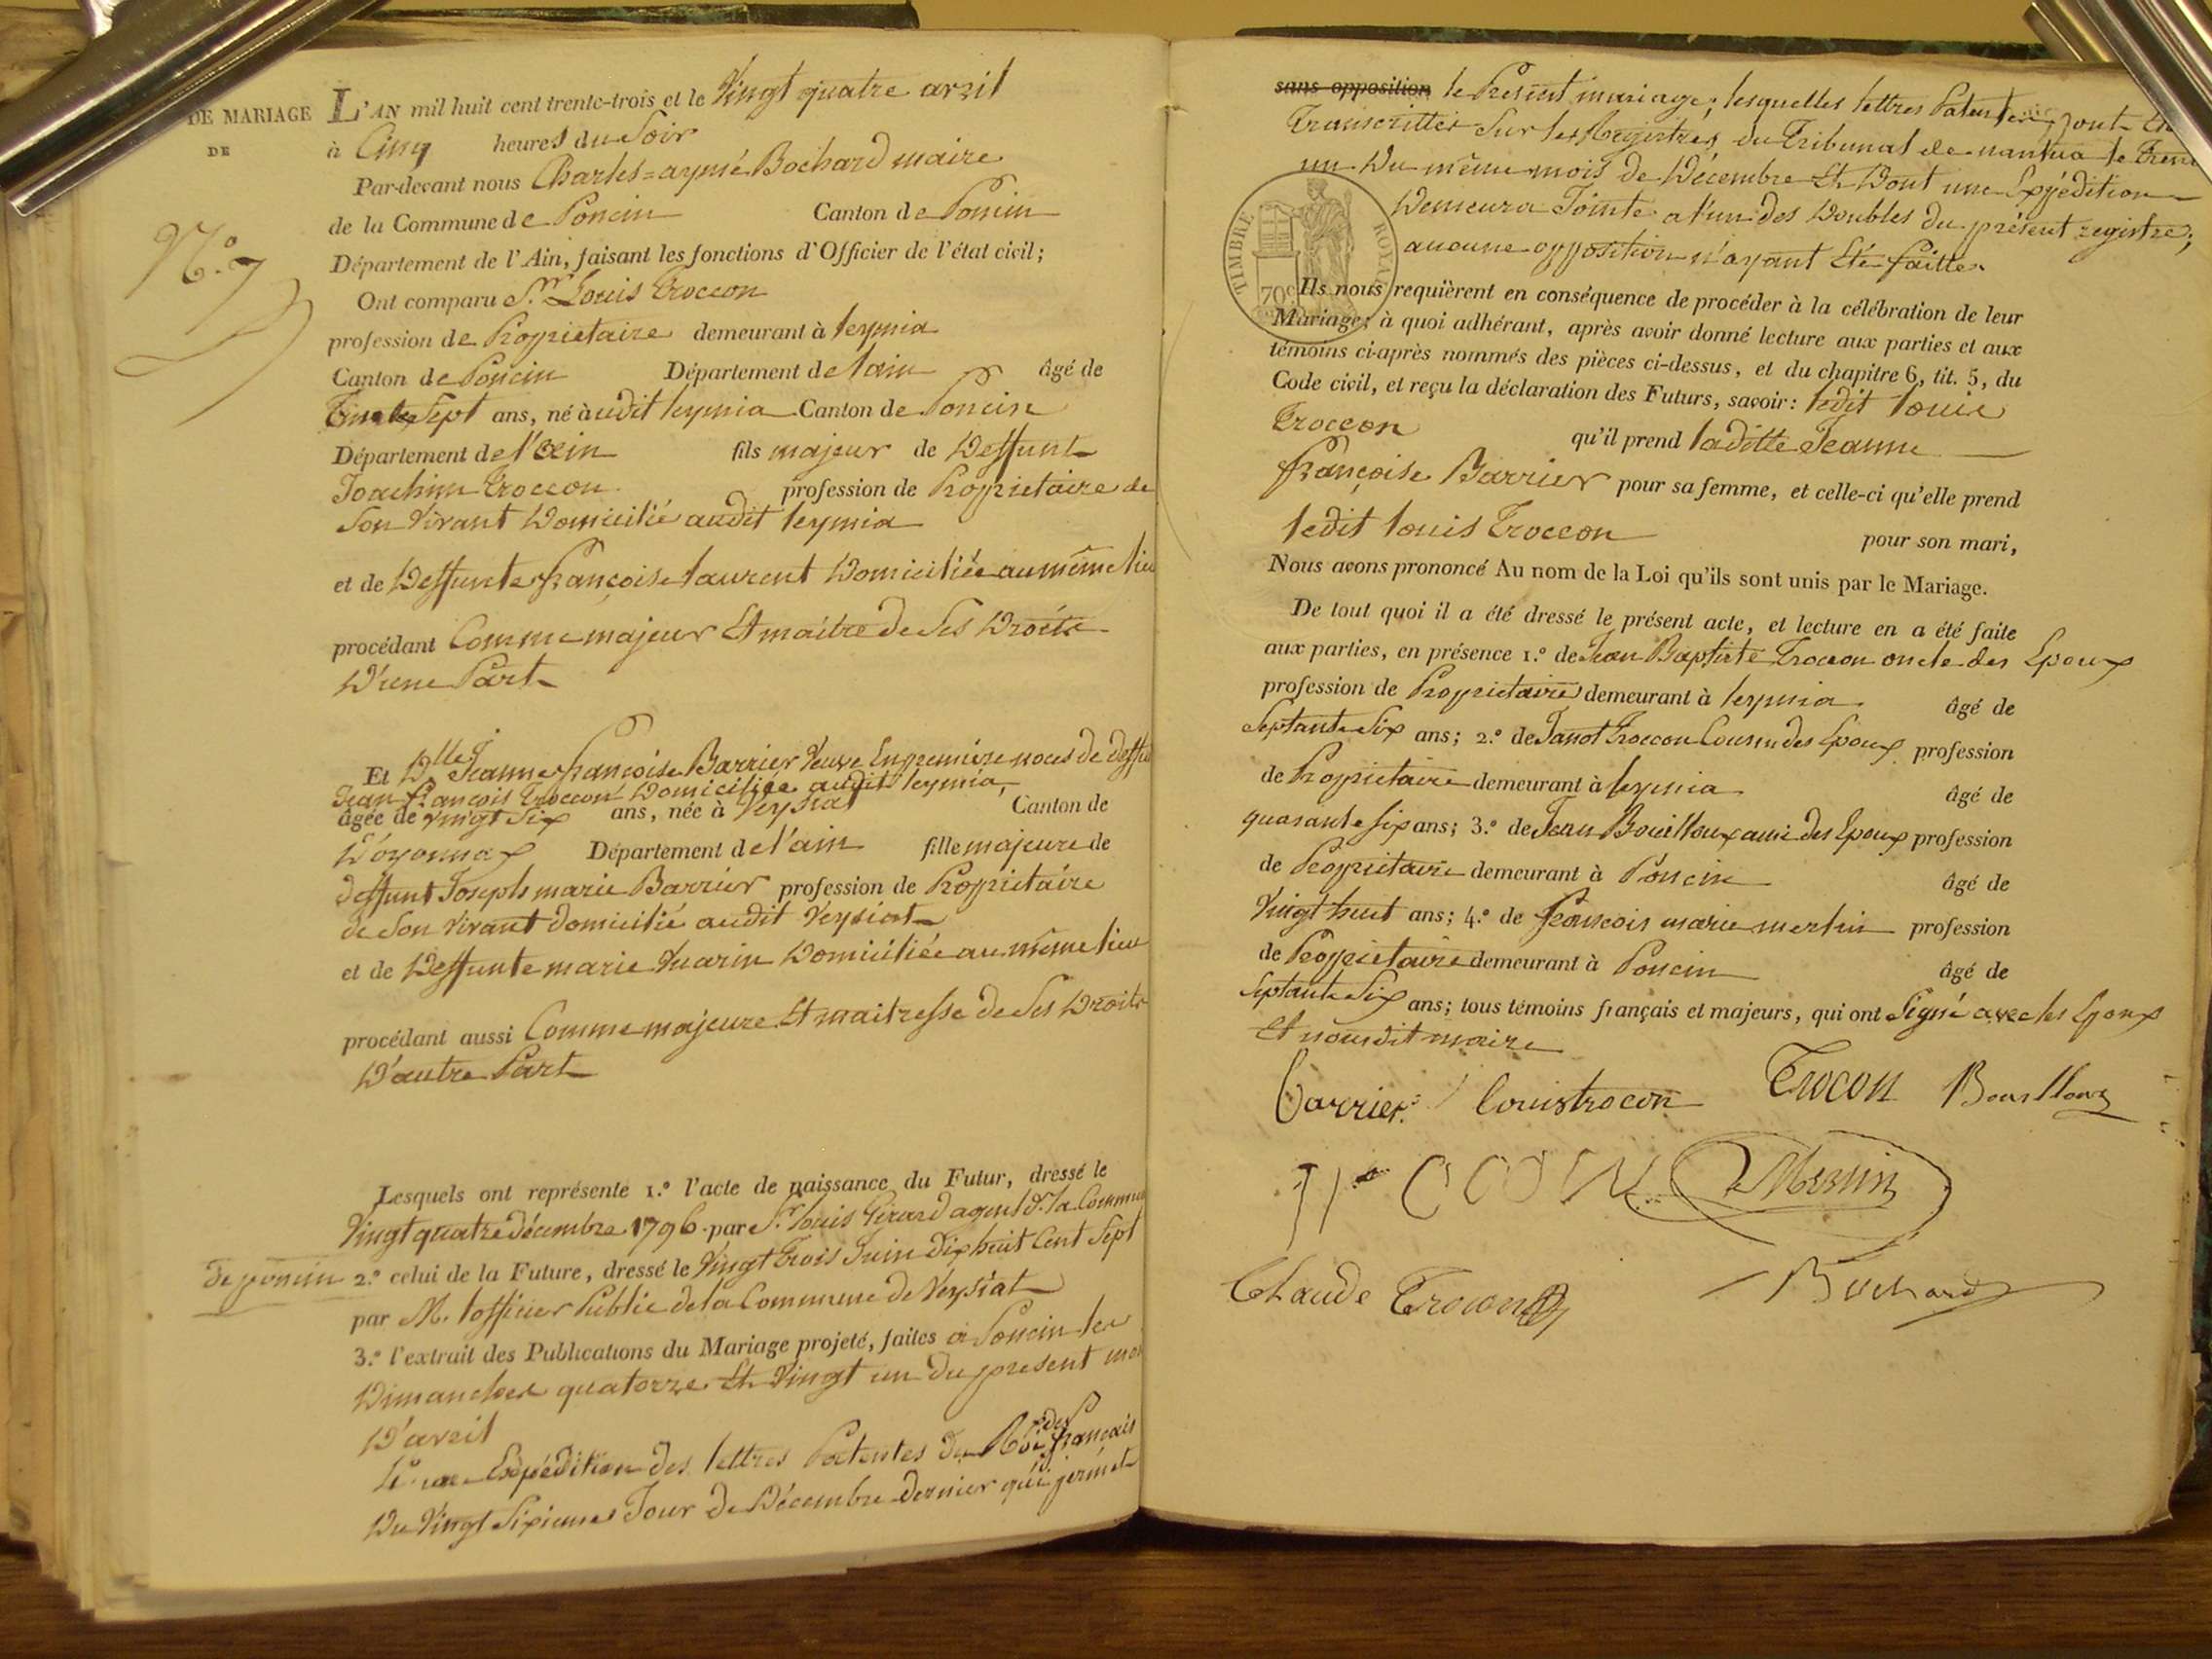 DE MARIAGE
DE
N.º 7
L'AN mil huit cent trente-trois et le Vingt quatre avril
à Cinq heures du Soir
Par-devant nous Charles=aymé Bochard maire
de la Commune de Poncin Canton de Poncin
Département de l'Ain, faisant les fonctions d'Officier de l'état civil;
Ont comparu S.r Louis Troccon
profession de Propriétaire demeurant à leymia
Canton de Poncin Département de lain âgé de
Trente Sept ans, né àudit leymia Canton de Poncin
Département de l'ain fils majeur de Deffunt
Joachim Troccon profession de Propriétaire de
Son Vivant Domicilié audit leymia
et de Deffunte françoise laurent Domiciliée au même lieu
procédant Comme majeur Et maitre de Ses Droits
D'une Part
Et Dlle Jeanne françoise Barrier Veuve En premiere noces de deffu
Jean françois Troccon Domiciliée audit leymia,
âgée de Vingt Six ans, née à Veysiat Canton de
D'oyonnax Département de l'ain fille majeure de
deffunt Joseph marie Barrier profession de Propriétaire
de Son Vivant domicilié audit Veysiat
et de Deffunte marie Vuarin Domiciliée au même lieu
procédant aussi Comme majeure Et maitresse de Ses Droits
D'autre Part
Lesquels ont représenté 1.º l'acte de naissance du Futur, dressé le
Vingt quatre décembre 1796 par S.r louis Girard agent d. la Commu
de poncin 2.º celui de la Future, dressé le Vingt Trois Juin dix huit Cent Sept
par M. lofficier Public de la Commune de Veysiat
3.º l'extrait des Publications du Mariage projeté, faites à Poncin les
Dimanches quatorze Et Vingt un du présent moi
D'avril
4.º une Expédition des lettres Patentes du Roi des français
Du Vingt Sixieme Jour de Décembre dernier qui permet
sans opposition le Présent mariage; lesquelles lettres Patentes, sont
Transcrittes Sur les Registres du Tribunal de nantua le Trente
un Du même mois de Décembre Et Dont une Expédition
Demeura Jointe a l'un des Doubles du présent registre;
aucune opposition n'ayant Eté faitte.
TIMBRE ROYAL
70c
Ils nous requièrent en conséquence de procéder à la célébration de leur
Mariage; à quoi adhérant, après avoir donné lecture aux parties et aux
témoins ci-après nommés des pièces ci-dessus, et du chapitre 6, tit. 5, du
Code civil, et reçu la déclaration des Futurs, savoir: ledit louis
Troccon qu'il prend laditte Jeanne
françoise Barrier pour sa femme, et celle-ci qu'elle prend
ledit louis Troccon pour son mari,
Nous avons prononcé Au nom de la Loi qu'ils sont unis par le Mariage.
De tout quoi il a été dressé le présent acte, et lecture en a été faite
aux parties, en présence 1.º de Jean Baptiste Troccon oncle des Epoux
profession de Propriétaire demeurant à leymia âgé de
Septante Six ans; 2.º de Janot Troccon Cousin des Epoux profession
de Propriétaire demeurant à leymia âgé de
quarante six ans; 3.º de Jean Bouilloux ami des Epoux profession
de Propriétaire demeurant à Poncin âgé de
Vingt huit ans; 4.º de françois marie merlin profession
de Propriétaire demeurant à Poncin âgé de
Septante Six ans; tous témoins français et majeurs, qui ont Signé avec les Epoux
Et nousdit maire
barrier. louis trocon Trocon Bouilloux
Merlin
Claude Trocon Bochard